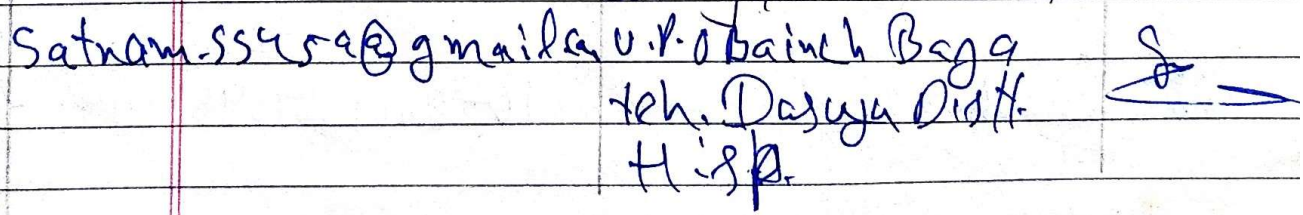 Satnam.ss459@gmail.com V.P.O Bainch Baga
teh. Dasuya Distt.
H.sp.